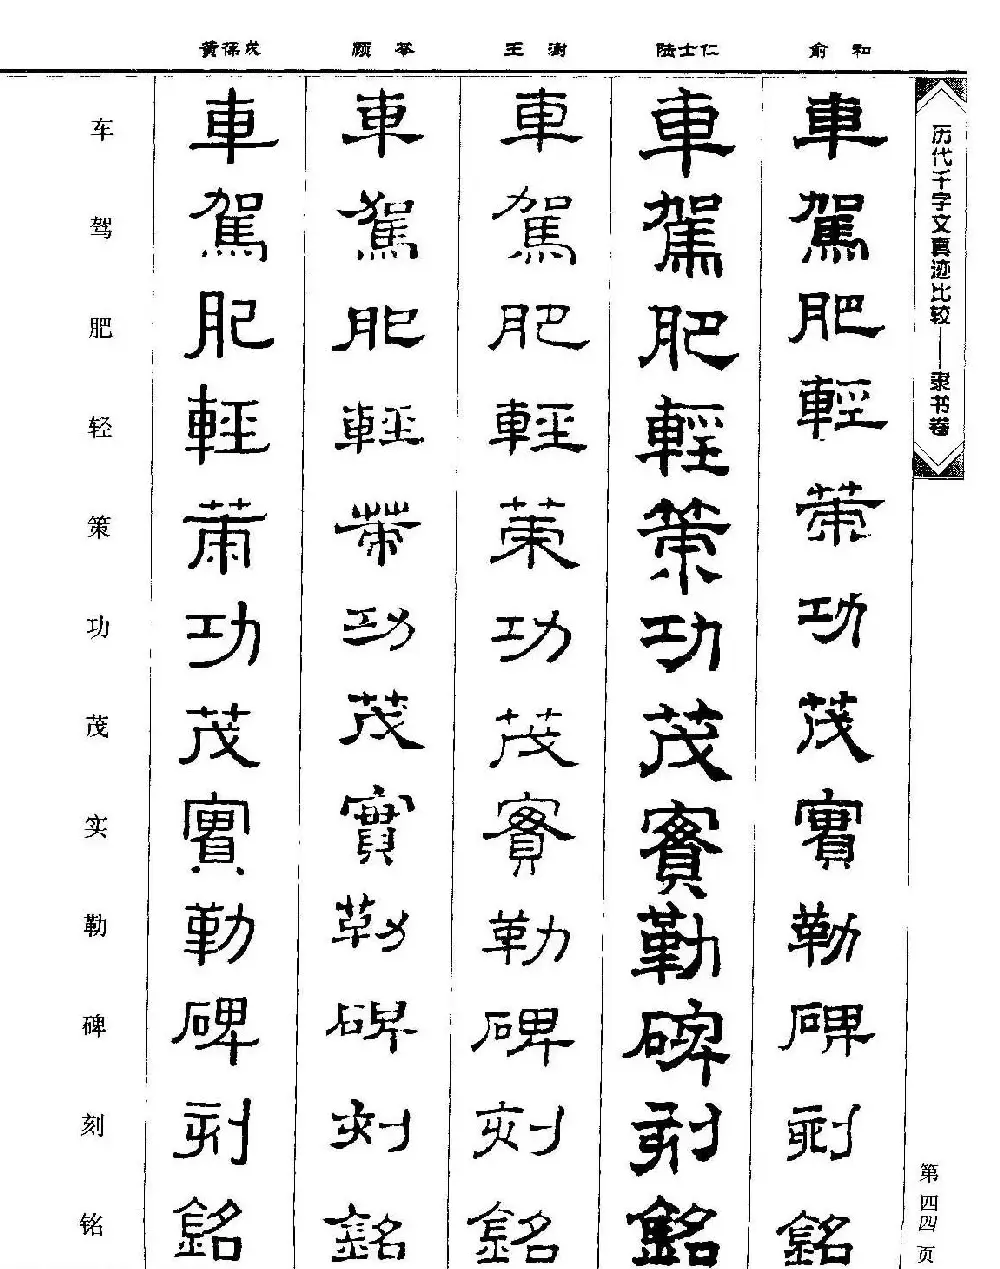 黄葆戉 顾苓 王澍 陆士仁 俞和
历代千字文真迹比较——隶书卷
车 車 車 車 車 車
驾 駕 駕 駕 駕 駕
肥 肥 肥 肥 肥 肥
轻 輕 輕 輕 輕 輕
策 策 策 策 策 策
功 功 功 功 功 功
茂 茂 茂 茂 茂 茂
实 實 實 實 實 實
勒 勒 勒 勒 勒 勒
碑 碑 碑 碑 碑 碑
刻 刻 刻 刻 刻 刻
铭 銘 銘 銘 銘 銘
第四四页